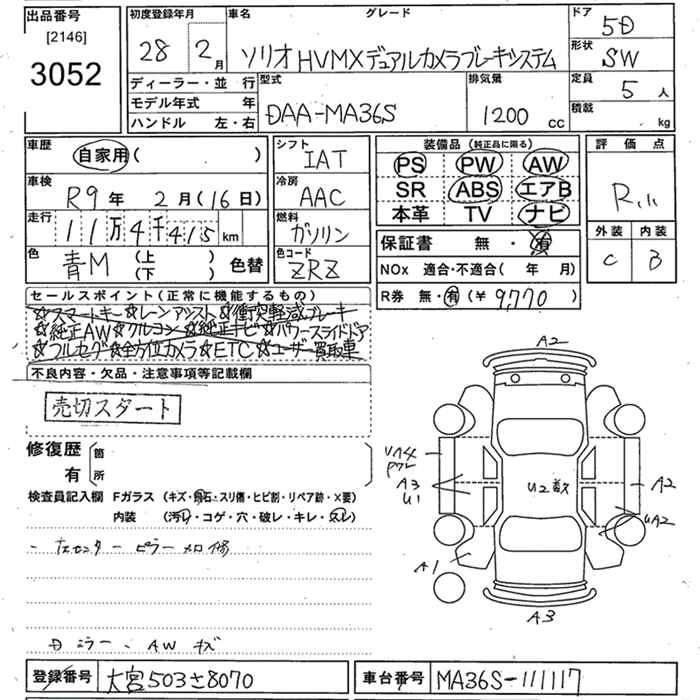 出品番号
[2146]
3052
初度登録年月 車名 グレード ドア 5D
28 2月 ソリオ HVMXデュアルカメラブレーキシステム
形状 SW
ディーラー・並行 型式 排気量 定員 5人
モデル年式 年 DAA-MA36S 1200 cc 積載 kg
ハンドル 左・右
車歴 自家用( )
シフト IAT
装備品 (純正品に限る)
PS PW AW
SR ABS エアB
本革 TV ナビ
評価点
R
外装 内装
C B
車検 R9年 2月(16日)
冷房 AAC
走行 11万4千415km
燃料 ガソリン
色 青M (上)(下) 色替
色コード ZRZ
保証書 無・有
NOx 適合・不適合( 年 月)
R券 無・有(¥ 9,770 )
セールスポイント(正常に機能するもの)
☆スマートキー☆レーンアシスト☆衝突軽減ブレーキ
☆純正AW☆クルコン☆純正ナビ☆パワースライドドア
☆フルセグ☆全方位カメラ☆ETC☆ユーザー買取車
不良内容・欠品・注意事項等記載欄
売切スタート
修復歴 箇所
有
検査員記入欄 Fガラス(キズ・飛石・スリ傷・ヒビ割・リペア跡・×要)
内装 (汚れ・コゲ・穴・破レ・キレ・スレ)
- 左センターピラー 修
Dミラー、AWキズ
A2
UA4
A3
U1
U2
A2
UA2
A1
A3
登録番号 大宮503さ8070
車台番号 MA36S-111117